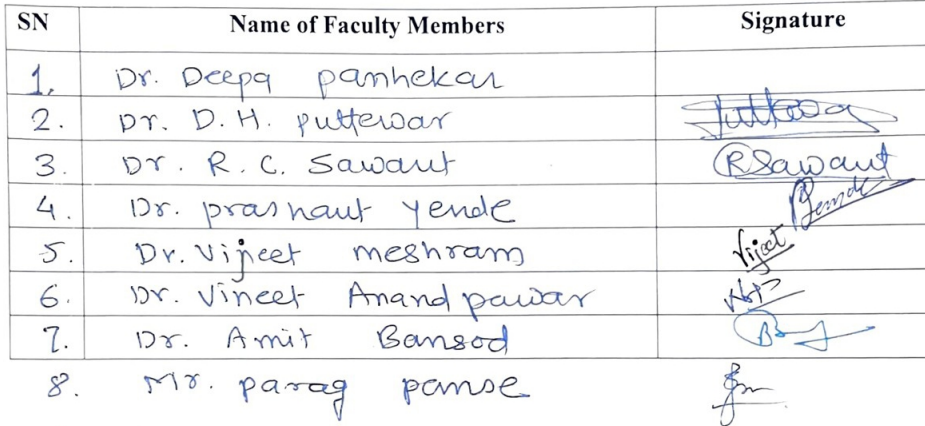 SN Name of Faculty Members Signature
1. Dr. Deepa panhekar
2. Dr. D. H. puttewar
3. Dr. R. C. Sawant RSawant
4. Dr. prashant yende
5. Dr. Vijeet meshram Vijeet
6. Dr. Vineet Anand pawar
7. Dr. Amit Bansod
8. Mr. parag panse